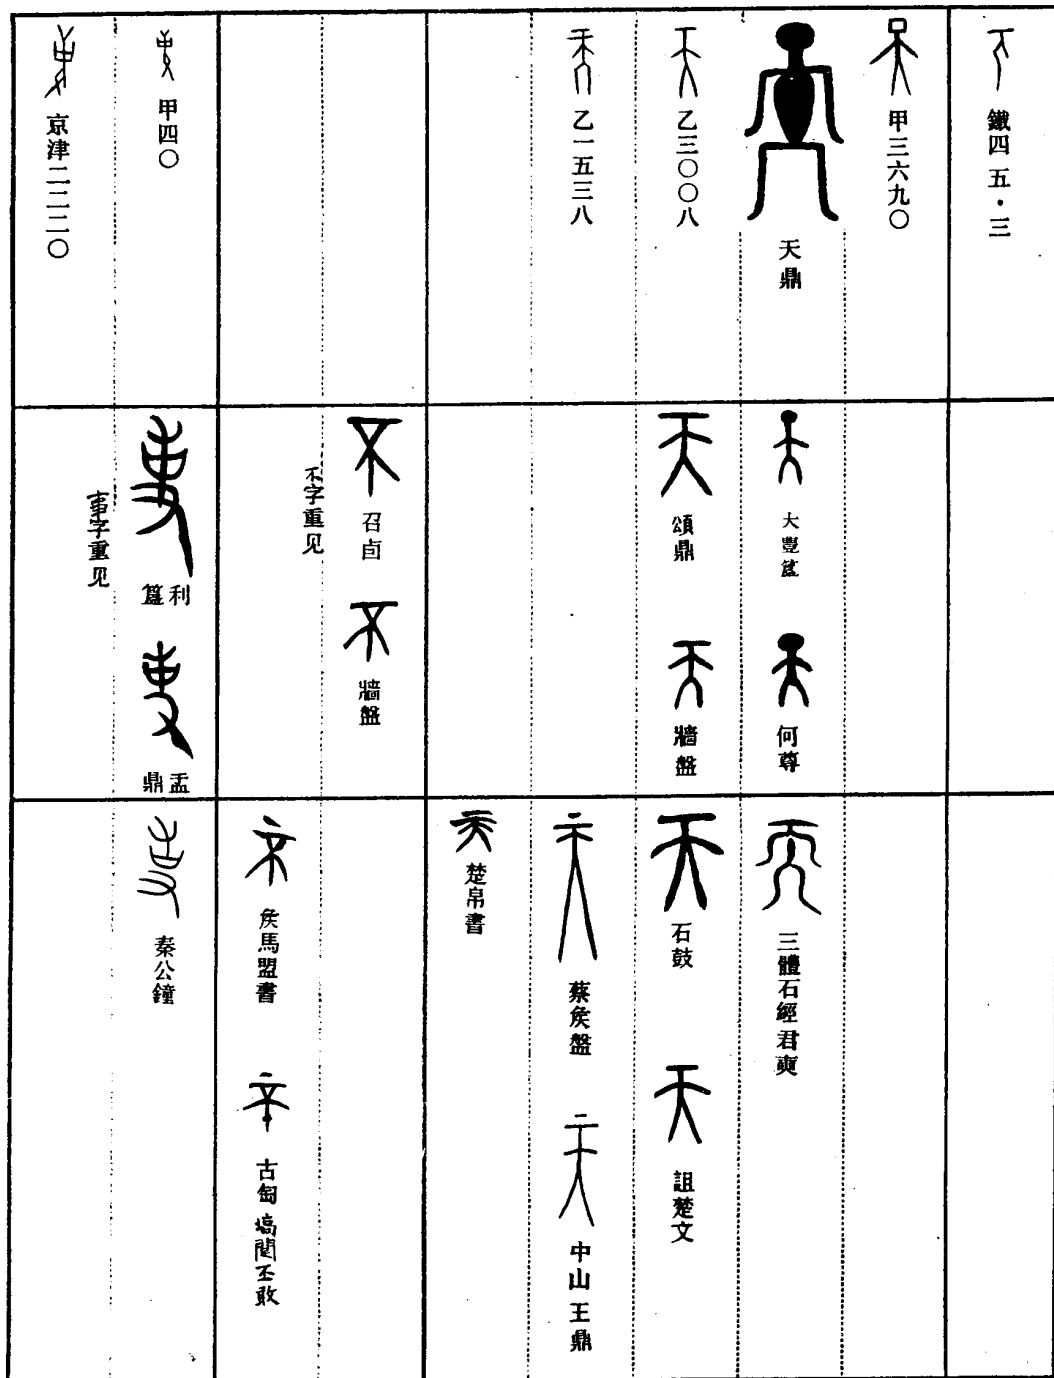 鐵四五·三
甲三六九〇
天鼎
乙三〇〇八
乙一五三八
甲四〇
京津二二二〇
大豐簋
何尊
頌鼎
牆盤
召卣
牆盤
不字重见
利簋
盂鼎
事字重见
三體石經君奭
石鼓
詛楚文
蔡侯盤
中山王鼎
楚帛書
侯馬盟書
古匋
丕敢
秦公鐘